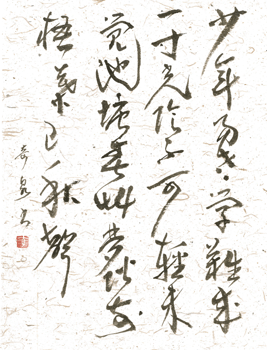 少年易老学難成
一寸光陰不可輕未
覺池塘春艸夢階前
梧葉已秋聲